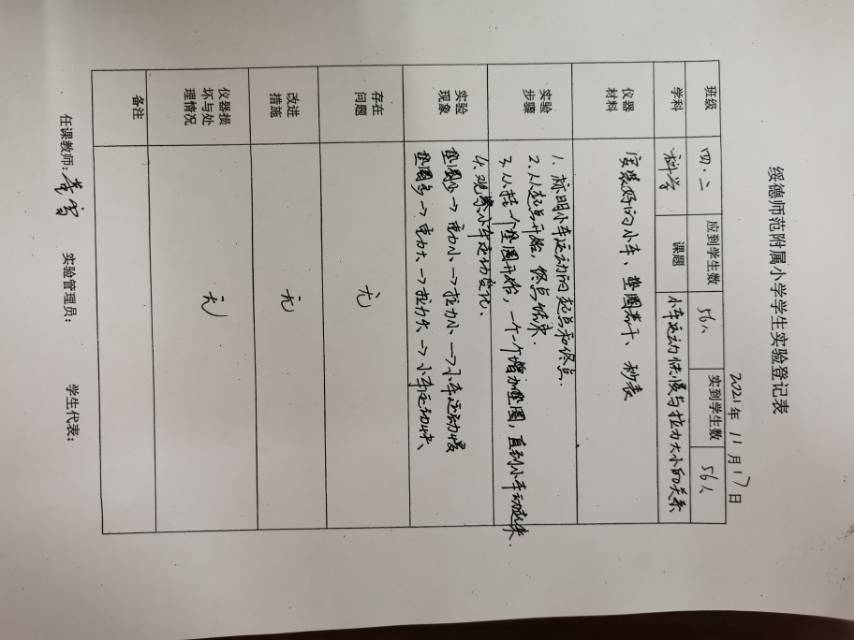 绥德师范附属小学学生实验登记表
2021年 11月 17日
班级 四.二 应到学生数 56人 实到学生数 56人
学科 科学 课题 小车运动快慢与拉力大小的关系
仪器
材料
安装好的小车、垫圈若干、秒表
实验
步骤
1. 标明小车运动的起点和终点.
2. 从起点开始,终点结束.
3. 从挂一个垫圈开始,一个一个增加垫圈,直到小车动起来.
4. 观察小车运动变化.
实验
现象
垫圈少→重力小→拉力小→小车运动慢
垫圈多→重力大→拉力大→小车运动快、
存在
问题
无
改进
措施
无
仪器损
坏与处
理情况
无
备注
任课教师: 实验管理员: 学生代表: